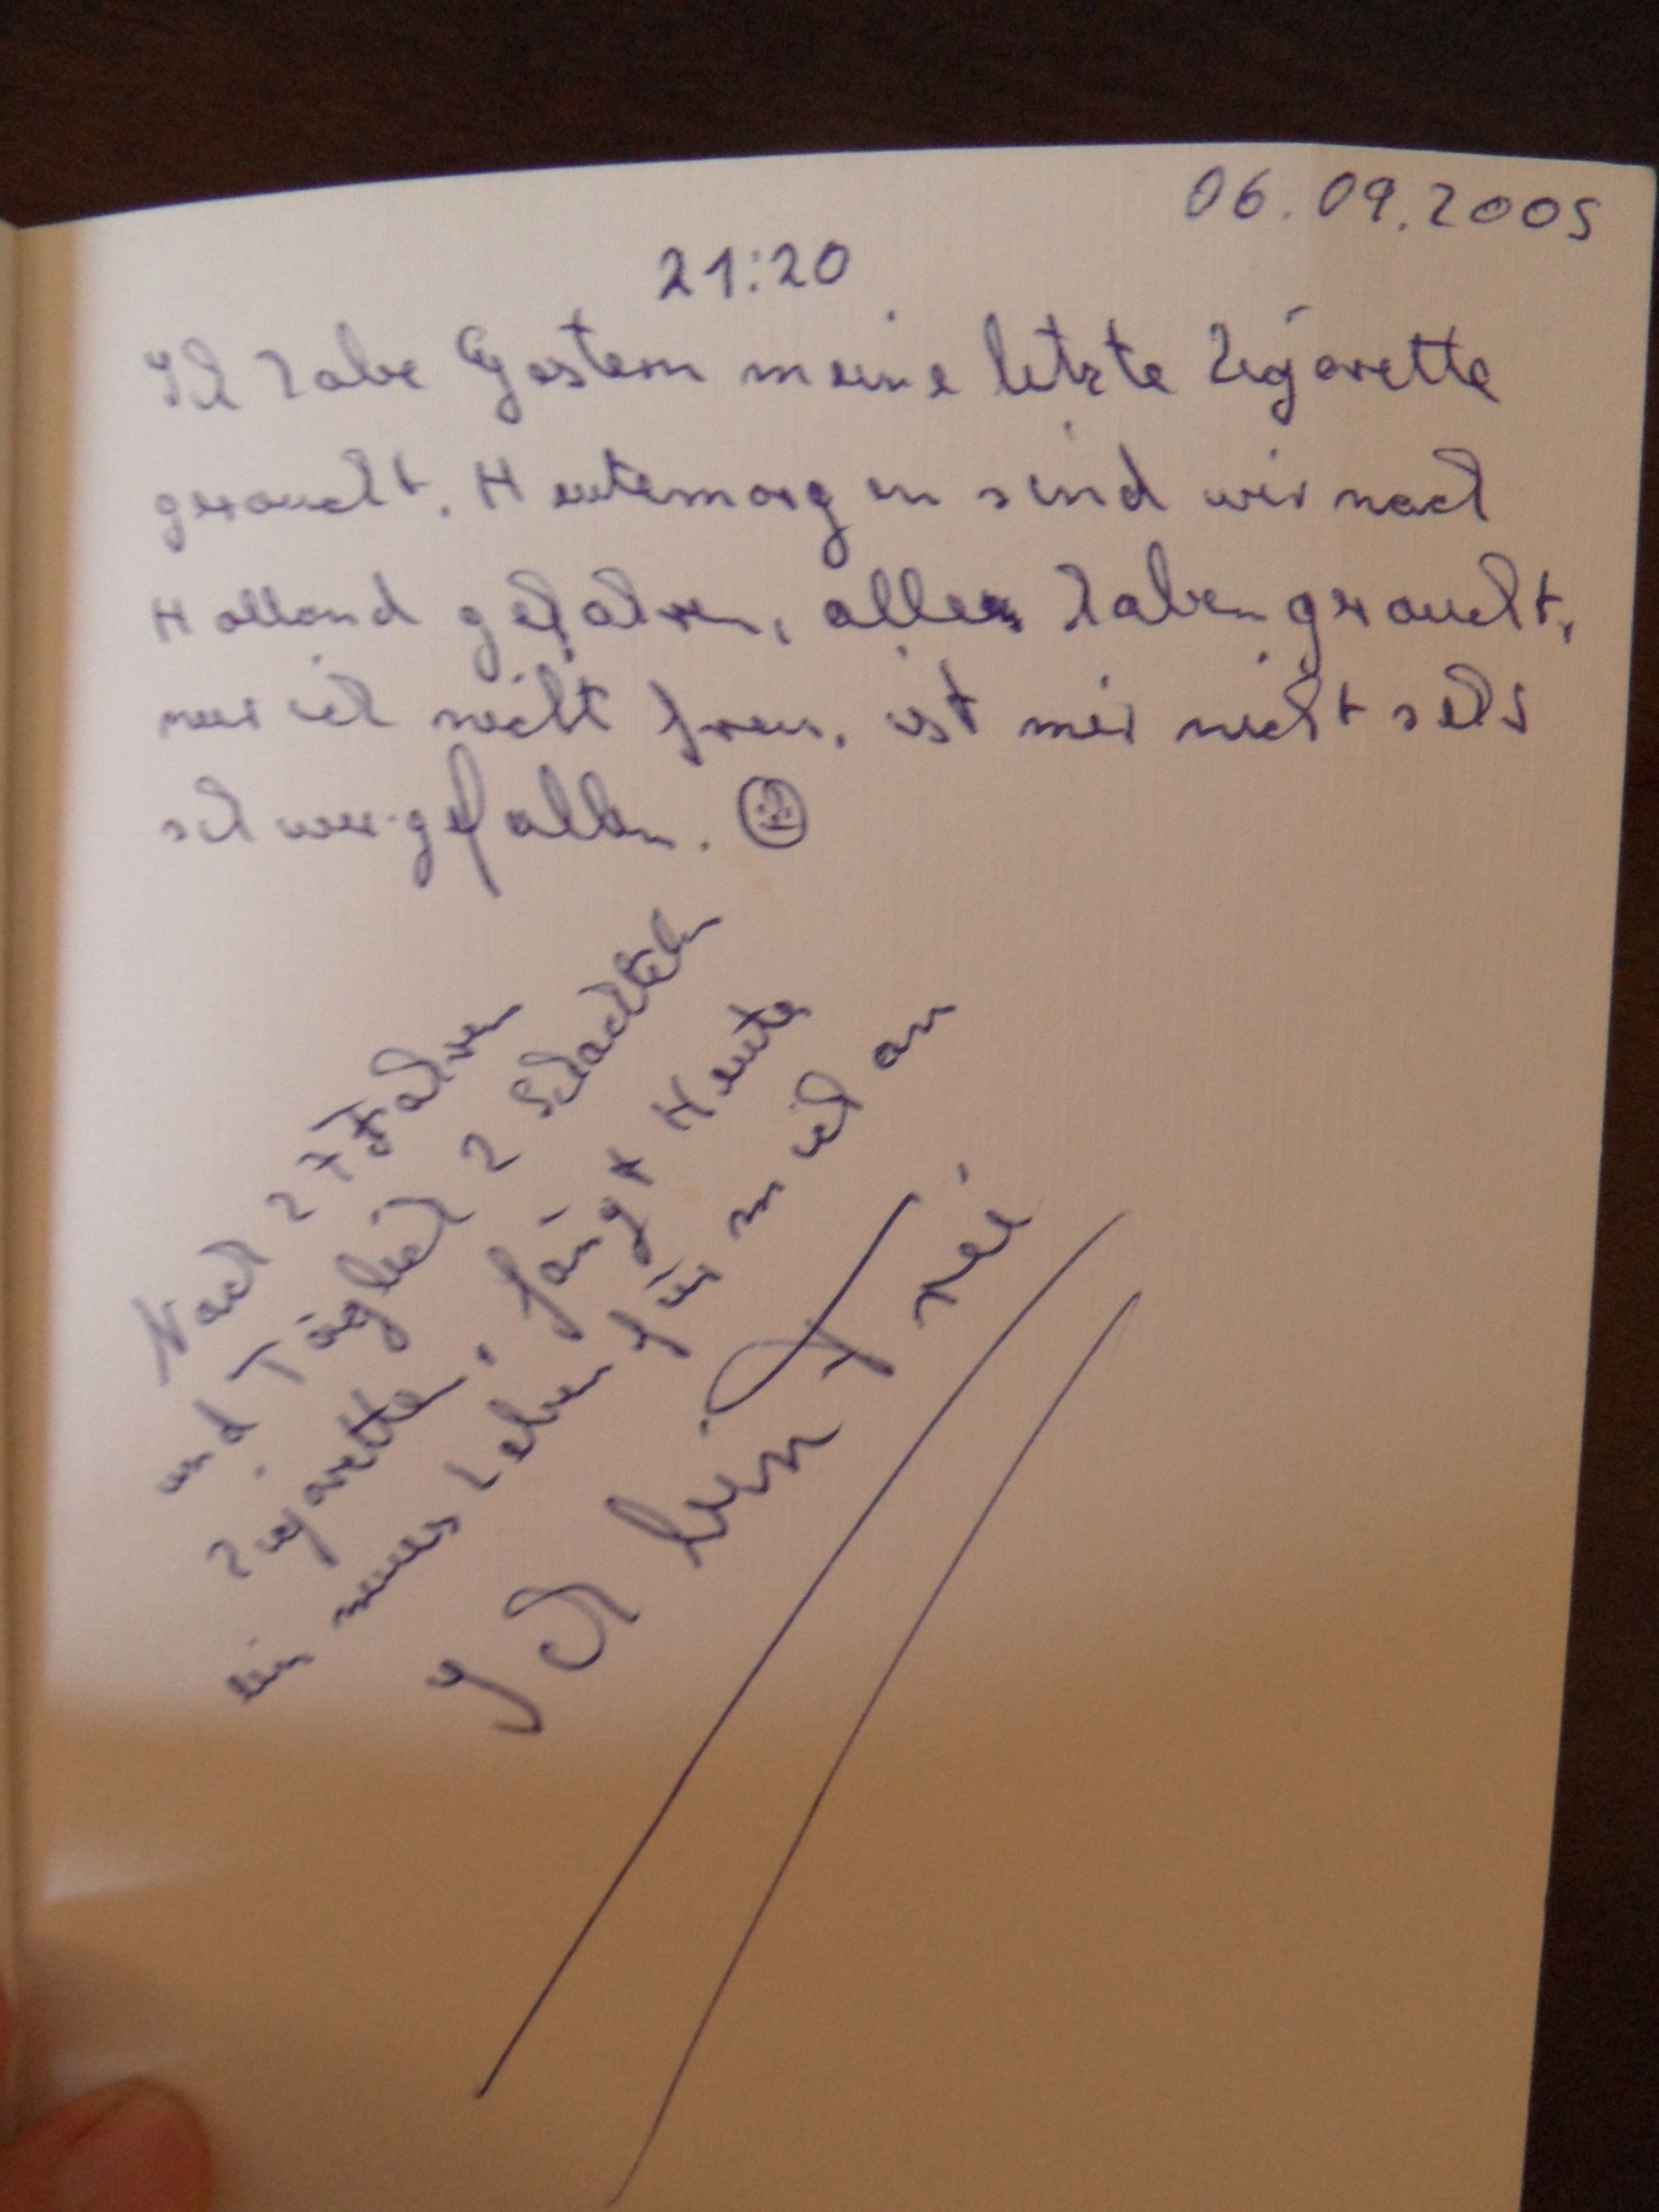 06.09.2005
21:20
Ich habe Gestern meine letzte Zigarette
geraucht. Heutemorgen sind wir nach
Holland gefahren, alle haben geraucht,
nur ich nicht ist mir nicht sehr
schwer gefallen.
Nach 27 Jahren
und Täglich 2 Schachteln
Zigaretten, fängt Heute
ein neues Leben für mich an
Ich bin Frei